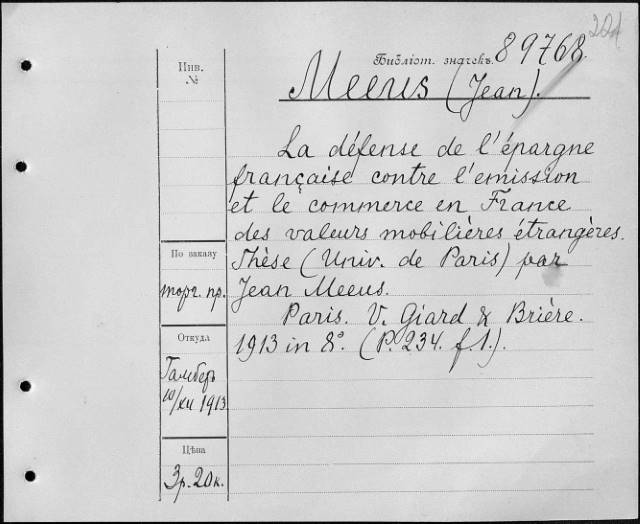 221
Библіот. значекъ. 89768.
Инв.
№
Meeus (Jean).
La défense de l'épargne
française contre l'emission
et le commerce en France
des valeurs mobilières étrangères.
Thèse (Univ. de Paris) par
Jean Meeus.
Paris. V. Giard & Brière.
1913 in 8°. (P. 234. f. 1.).
По заказу
торг. пр.
Откуда
Гамберъ
10/XII 1913
Цѣна
3 р. 20 к.